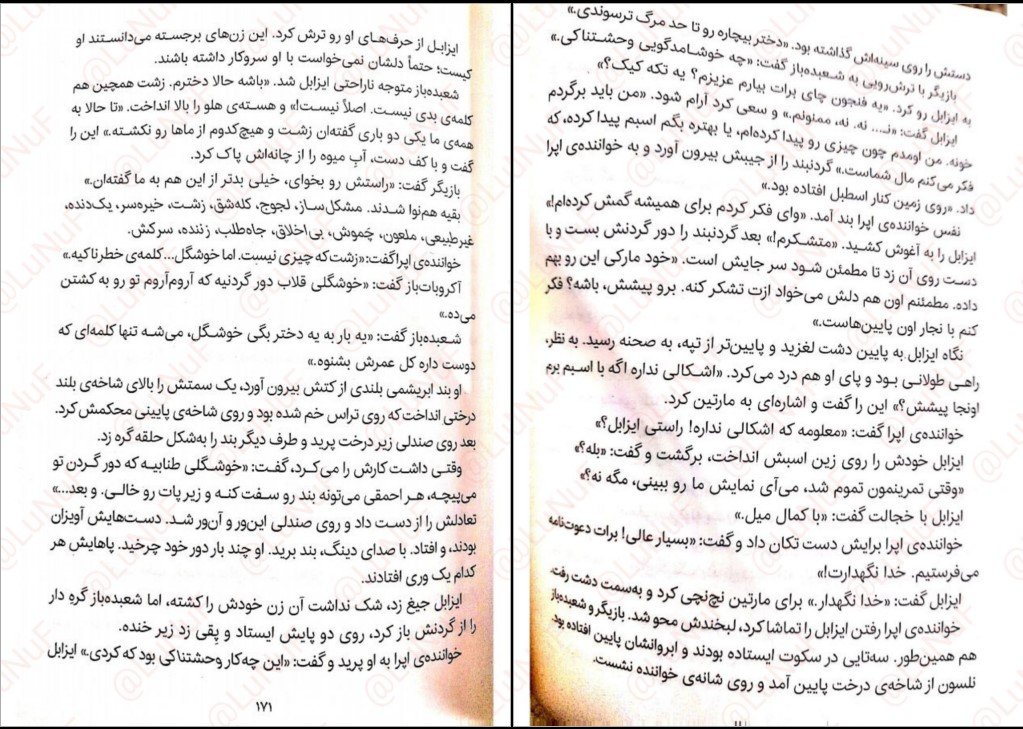 ایزابل از حرف‌های او رو ترش کرد. این زن‌های برجسته می‌دانستند او
کیست؛ حتماً دلشان نمی‌خواست با او سروکار داشته باشند.
شعبده‌باز متوجه ناراحتی ایزابل شد. «باشه حالا دخترم. زشت همچین هم
کلمه‌ی بدی نیست. اصلاً نیست!» و هسته‌ی هلو را بالا انداخت. «تا حالا به
همه‌ی ما یکی دو باری گفته‌ان زشت و هیچ‌کدوم از ماها رو نکشته.» این را
گفت و با کف دست، آب میوه را از چانه‌اش پاک کرد.
بازیگر گفت: «راستش رو بخوای، خیلی بدتر از این هم به ما گفته‌ان.»
بقیه هم‌نوا شدند. مشکل‌ساز، لجوج، کله‌شق، زشت، خیره‌سر، یک‌دنده،
غیرطبیعی، ملعون، چموش، بی‌اخلاق، جاه‌طلب، زننده، سرکش.
خواننده‌ی اپرا گفت: «زشت که چیزی نیست. اما خوشگل... کلمه‌ی خطرناکیه.»
آکروبات‌باز گفت: «خوشگلی قلاب دور گردنیه که آروم‌آروم تو رو به کشتن
می‌ده.»
شعبده‌باز گفت: «یه بار به یه دختر بگی خوشگل، می‌شه تنها کلمه‌ای که
دوست داره کل عمرش بشنوه.»
او بند ابریشمی بلندی از کتش بیرون آورد، یک سمتش را بالای شاخه‌ی بلند
درختی انداخت که روی تراس خم شده بود و روی شاخه‌ی پایینی محکمش کرد.
بعد روی صندلی زیر درخت پرید و طرف دیگر بند را به‌شکل حلقه گره زد.
وقتی داشت کارش را می‌کرد، گفت: «خوشگلی طنابیه که دور گردن تو
می‌پیچه، هر احمقی می‌تونه بند رو سفت کنه و زیر پات رو خالی. و بعد...»
تعادلش را از دست داد و روی صندلی این‌ور و آن‌ور شد. دست‌هایش آویزان
بودند، و افتاد. با صدای دینگ، بند برید. او چند بار دور خود چرخید. پاهایش هر
کدام یک وری افتادند.
ایزابل جیغ زد، شک نداشت آن زن خودش را کشته، اما شعبده‌باز گره دار
را از گردنش باز کرد، روی دو پایش ایستاد و پِقی زد زیر خنده.
خواننده‌ی اپرا به او پرید و گفت: «این چه‌کار وحشتناکی بود که کردی.» ایزابل
۱۷۱
دستش را روی سینه‌اش گذاشته بود. «دختر بیچاره رو تا حد مرگ ترسوندی.»
بازیگر با ترش‌رویی به شعبده‌باز گفت: «چه خوشامدگویی وحشتناکی.»
به ایزابل رو کرد. «یه فنجون چای برات بیارم عزیزم؟ یه تکه کیک؟»
ایزابل گفت: «نـ... نه. نه، ممنونم.» و سعی کرد آرام شود. «من باید برگردم
خونه. من اومدم چون چیزی رو پیدا کرده‌ام، یا بهتره بگم اسبم پیدا کرده، که
فکر می‌کنم مال شماست.» گردنبند را از جیبش بیرون آورد و به خواننده‌ی اپرا
داد. «روی زمین کنار اسطبل افتاده بود.»
نفس خواننده‌ی اپرا بند آمد. «وای فکر کردم برای همیشه گمش کرده‌ام!»
ایزابل را به آغوش کشید. «متشکرم!» بعد گردنبند را دور گردنش بست و با
دست روی آن زد تا مطمئن شود سر جایش است. «خود مارکی این رو بهم
داده. مطمئنم اون هم دلش می‌خواد ازت تشکر کنه. برو پیشش، باشه؟ فکر
کنم با نجار اون پایین‌هاست.»
نگاه ایزابل به پایین دشت لغزید و پایین‌تر از تپه، به صحنه رسید. به نظر،
راهی طولانی بود و پای او هم درد می‌کرد. «اشکالی نداره اگه با اسبم برم
اونجا پیشش؟» این را گفت و اشاره‌ای به مارتین کرد.
خواننده‌ی اپرا گفت: «معلومه که اشکالی نداره! راستی ایزابل؟»
ایزابل خودش را روی زین اسبش انداخت، برگشت و گفت: «بله؟»
«وقتی تمرینمون تموم شد، می‌آی نمایش ما رو ببینی، مگه نه؟»
ایزابل با خجالت گفت: «با کمال میل.»
خواننده‌ی اپرا برایش دست تکان داد و گفت: «بسیار عالی! برات دعوت‌نامه
می‌فرستیم. خدا نگهدارت!»
ایزابل گفت: «خدا نگهدار.» برای مارتین نچ‌نچی کرد و به‌سمت دشت رفت.
خواننده‌ی اپرا رفتن ایزابل را تماشا کرد، لبخندش محو شد. بازیگر و شعبده‌باز
هم همین‌طور. سه‌تایی در سکوت ایستاده بودند و ابروانشان پایین افتاده بود.
نلسون از شاخه‌ی درخت پایین آمد و روی شانه‌ی خواننده نشست.
@LuNuF